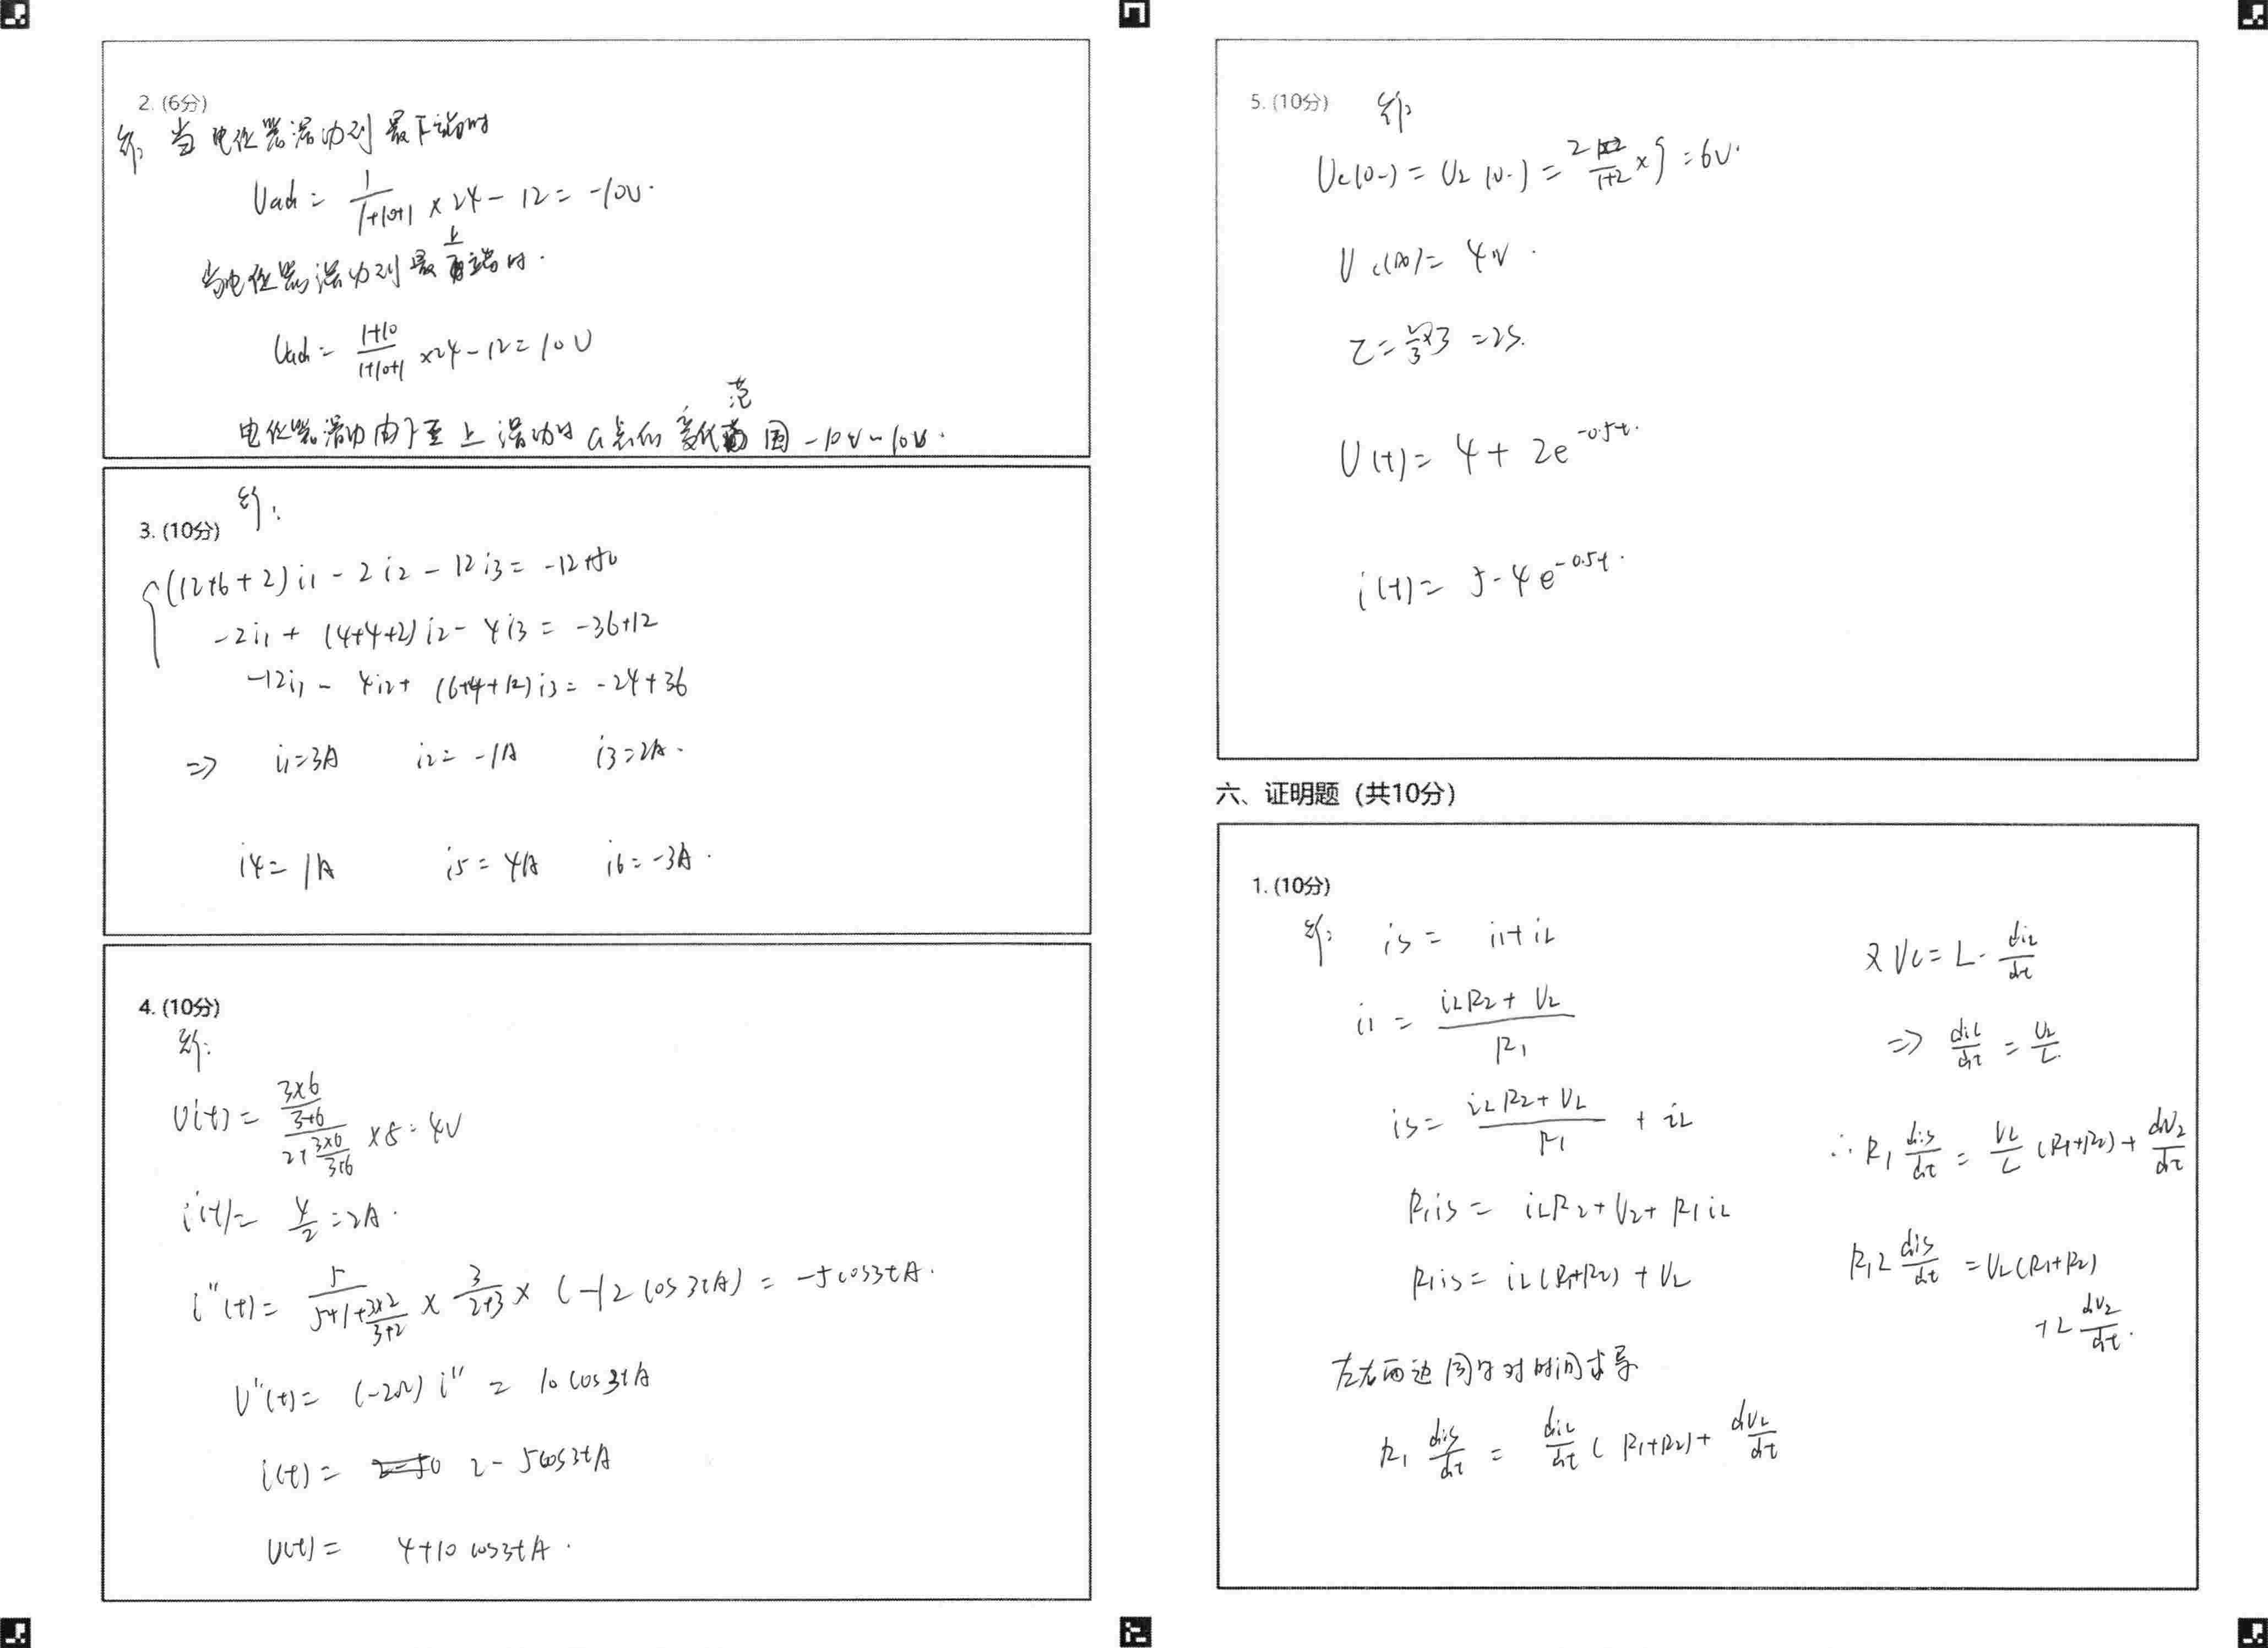 2. (6分)
解: 当电位器滑动到最下端时
Uad = 1/(1+10+1) × 24 - 12 = -10V.
当电位器滑动到最上端时.
Uad = (1+10)/(1+10+1) ×24-12=10V
电位器滑动由下至上滑动时a点的变化范围 -10V~10V.
3. (10分) 解:
(12+6+2)i1 - 2i2 - 12i3 = -12+50
-2i1 + (4+4+2)i2 - 4i3 = -36+12
-12i1 - 4i2+ (6+4+12)i3 = -24+36
=> i1=3A i2= -1A i3=2A.
i4= 1A i5= 4A i6=-3A.
4. (10分)
解:
U'(t) = (3×6/(3+6))/(2+3×6/(3+6)) ×8=4V
i'(t)= 4/2 =2A.
i''(t) = 5/(5+1+3×2/(3+2)) × 3/(2+3) × (-12cos3tA) = -5cos3tA.
U''(t)= (-2Ω) i'' = 10cos3tA
i(t) = 2-5cos3tA
U(t) = 4+10cos3tA.
5. (10分) 解:
Uc(0-) = U2(0-) = 2/(1+2) × 9 =6V.
Uc(∞)= 4V.
τ = 2/3×3 =2S.
U(t)= 4+ 2e^-0.5t.
i(t)= 5-4e^-0.5t.
六、证明题(共10分)
1. (10分)
解: is = i1+iL
i1 = (iLR2+UL)/R1
is= (iLR2+UL)/R1 + iL
R1is = iLR2+UL+R1iL
R1is= iL(R1+R2)+UL
左右两边同时对时间求导
R1 dis/dt = diL/dt (R1+R2)+ dUL/dt
又UL= L· diL/dt
=> diL/dt = UL/L.
∴ R1 dis/dt = UL/L (R1+R2)+ dUL/dt
R1L dis/dt = UL(R1+R2)
+L dUL/dt.